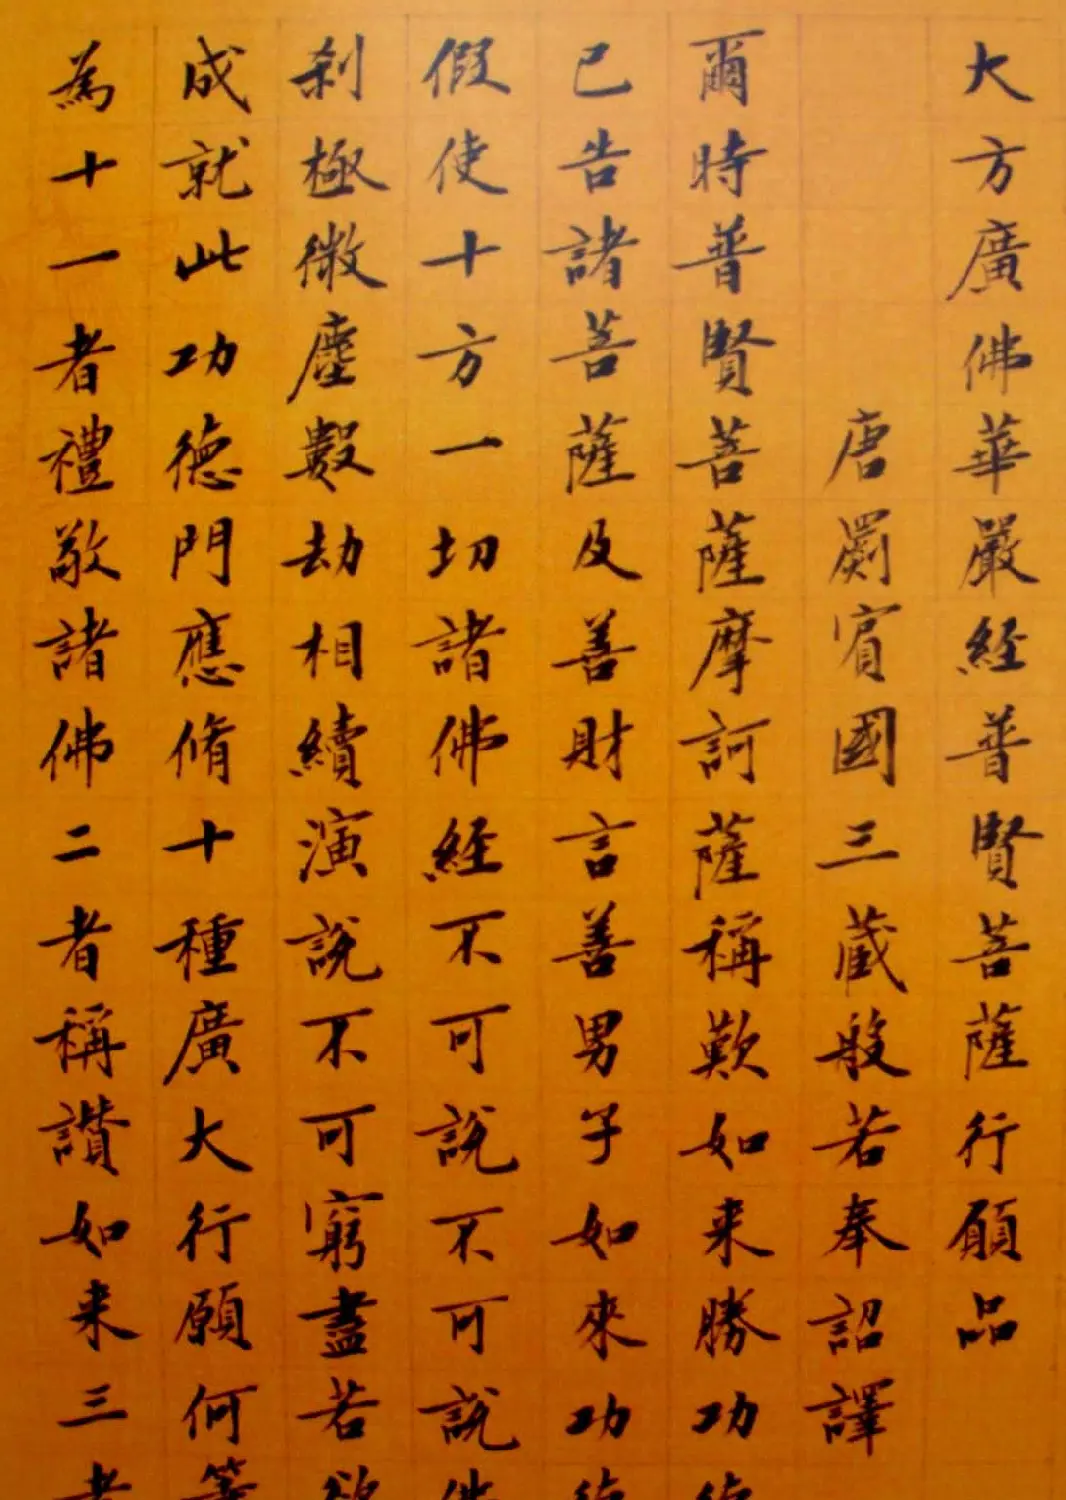 大方廣佛華嚴經普賢菩薩行願品
唐罽賓國三藏般若奉詔譯
爾時普賢菩薩摩訶薩稱歎如来勝功德
已告諸菩薩及善財言善男子如來功德
假使十方一切諸佛經不可說不可說佛
刹極微塵數劫相續演說不可窮盡若欲
成就此功德門應脩十種廣大行願何等
為十一者禮敬諸佛二者稱讚如来三者